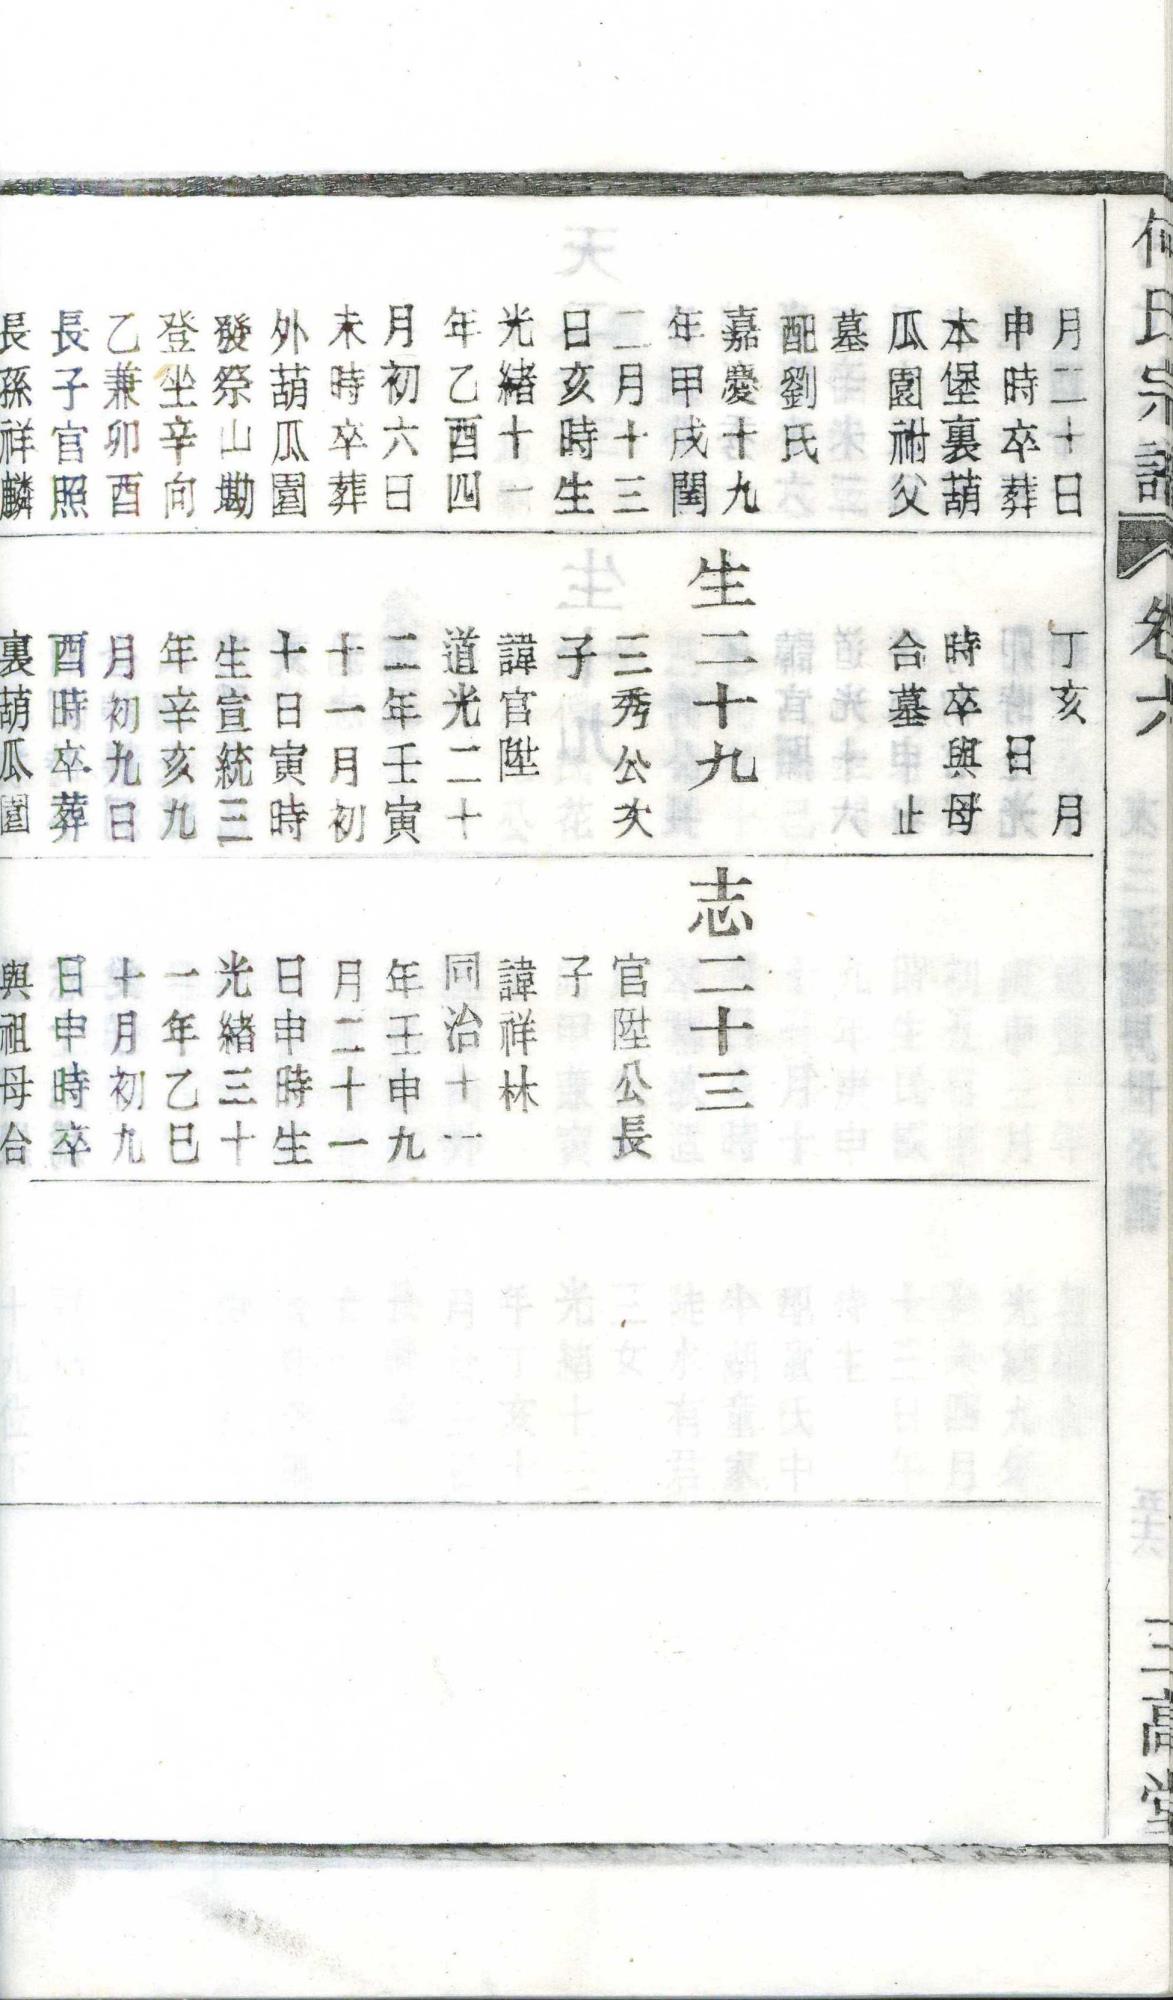 何氏宗譜
卷六
三高堂
月二十日
申時卒葬
本堡裏葫
瓜園祔父
墓
配劉氏
嘉慶十九
年甲戌閏
二月十三
日亥時生
光緒十一
年乙酉四
月初六日
未時卒葬
外葫瓜園
發祭山勘
登坐辛向
乙兼卯酉
長子官照
長孫祥麟
丁亥月
日
時卒與母
合墓止
生二十九
三秀公次
子
諱官陞
道光二十
二年壬寅
十一月初
十日寅時
生宣統三
年辛亥九
月初九日
酉時卒葬
裏葫瓜園
志二十三
官陞公長
子
諱祥林
同治十一
年壬申九
月二十一
日申時生
光緒三十
一年乙巳
十月初九
日申時卒
與祖母合